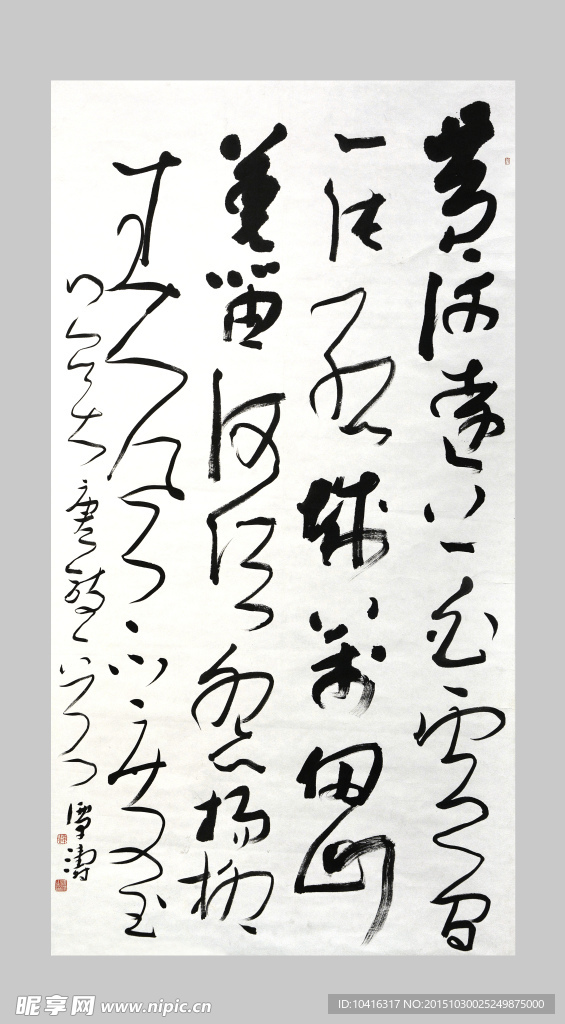 黄河遠上白雲間
一片孤城萬仞山
羌笛何須怨楊柳
春風不度玉
門關 唐詩一首 濤
昵享网 www.nipic.cn
ID:10416317 NO:20151030025249875000